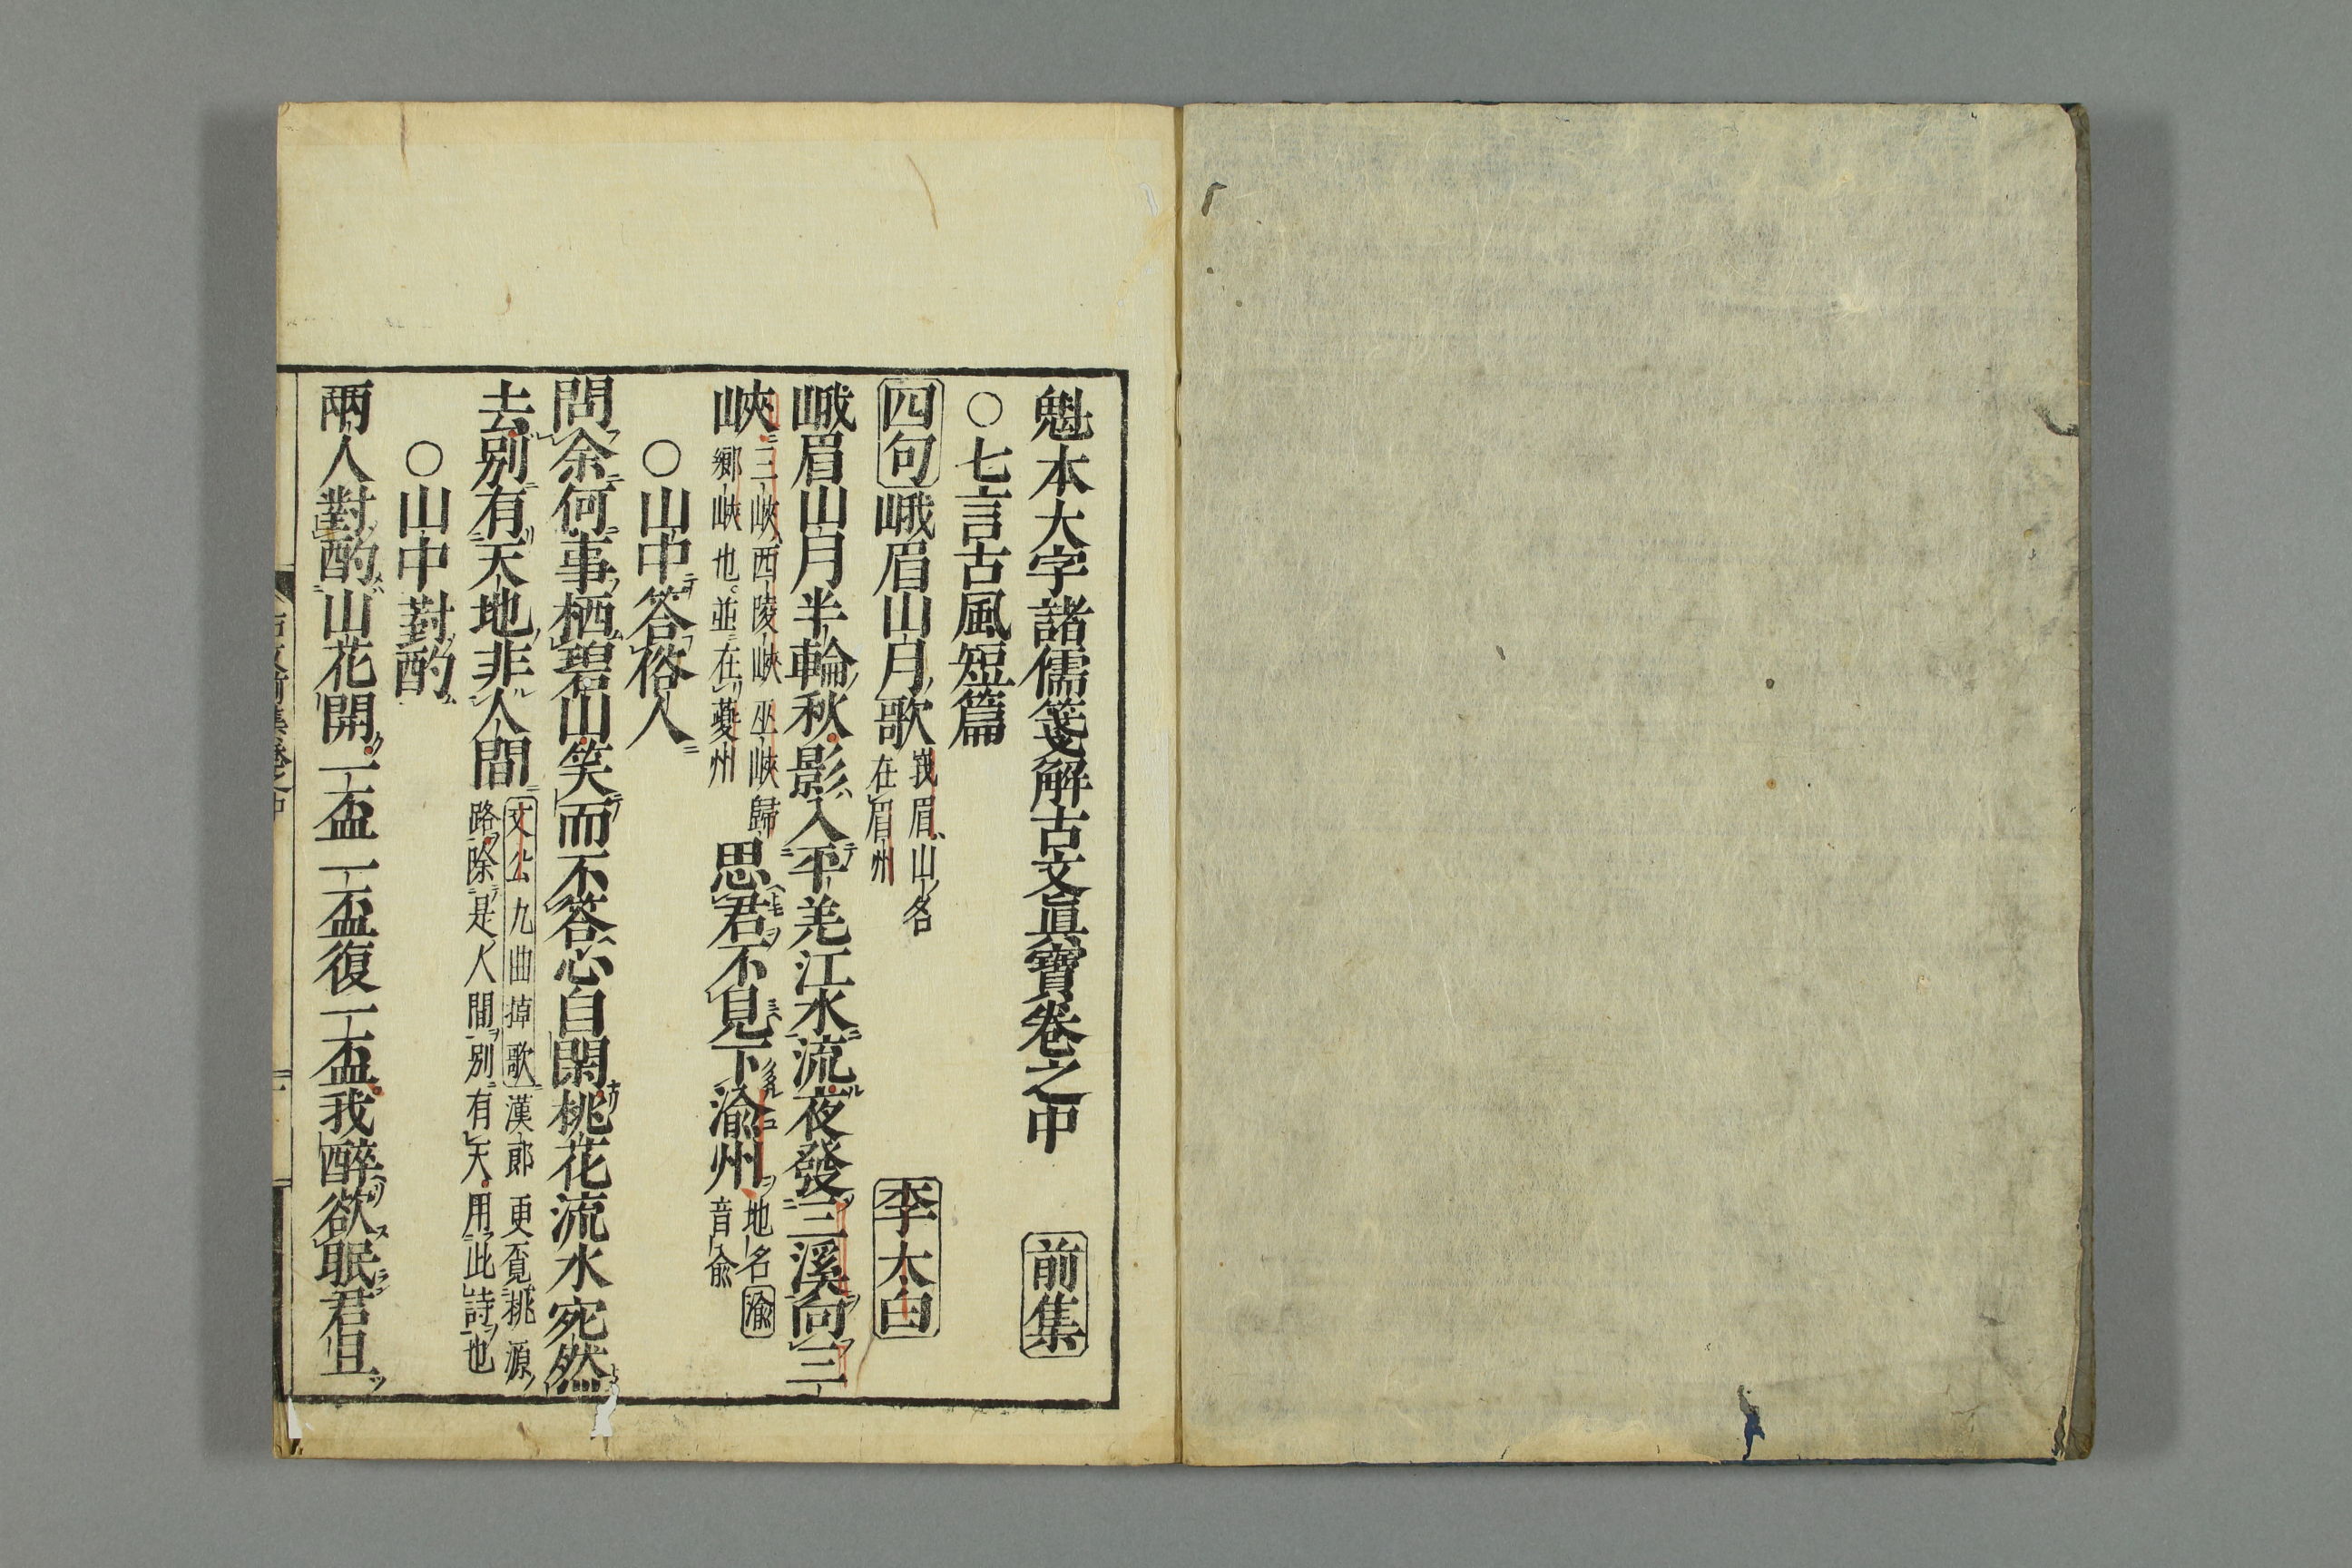 魁本大字諸儒箋解古文眞寶卷之中 前集
○七言古風短篇
四句 峨眉山月歌 峩眉山名在眉州 李太白
峨眉山月半輪秋影入平羌江水流夜發三溪向三
峽 三峽西陵峽巫峽歸鄉峽也並在夔州 思君不見下渝州 地名渝音俞
○山中答俗人
問余何事栖碧山笑而不答心自閑桃花流水宛然
去別有天地非人間 文公九曲掉歌漢郎更覓桃源路除是人間別有天用此詩也
○山中對酌
兩人對酌山花開一盃一盃復一盃我醉欲眠君且